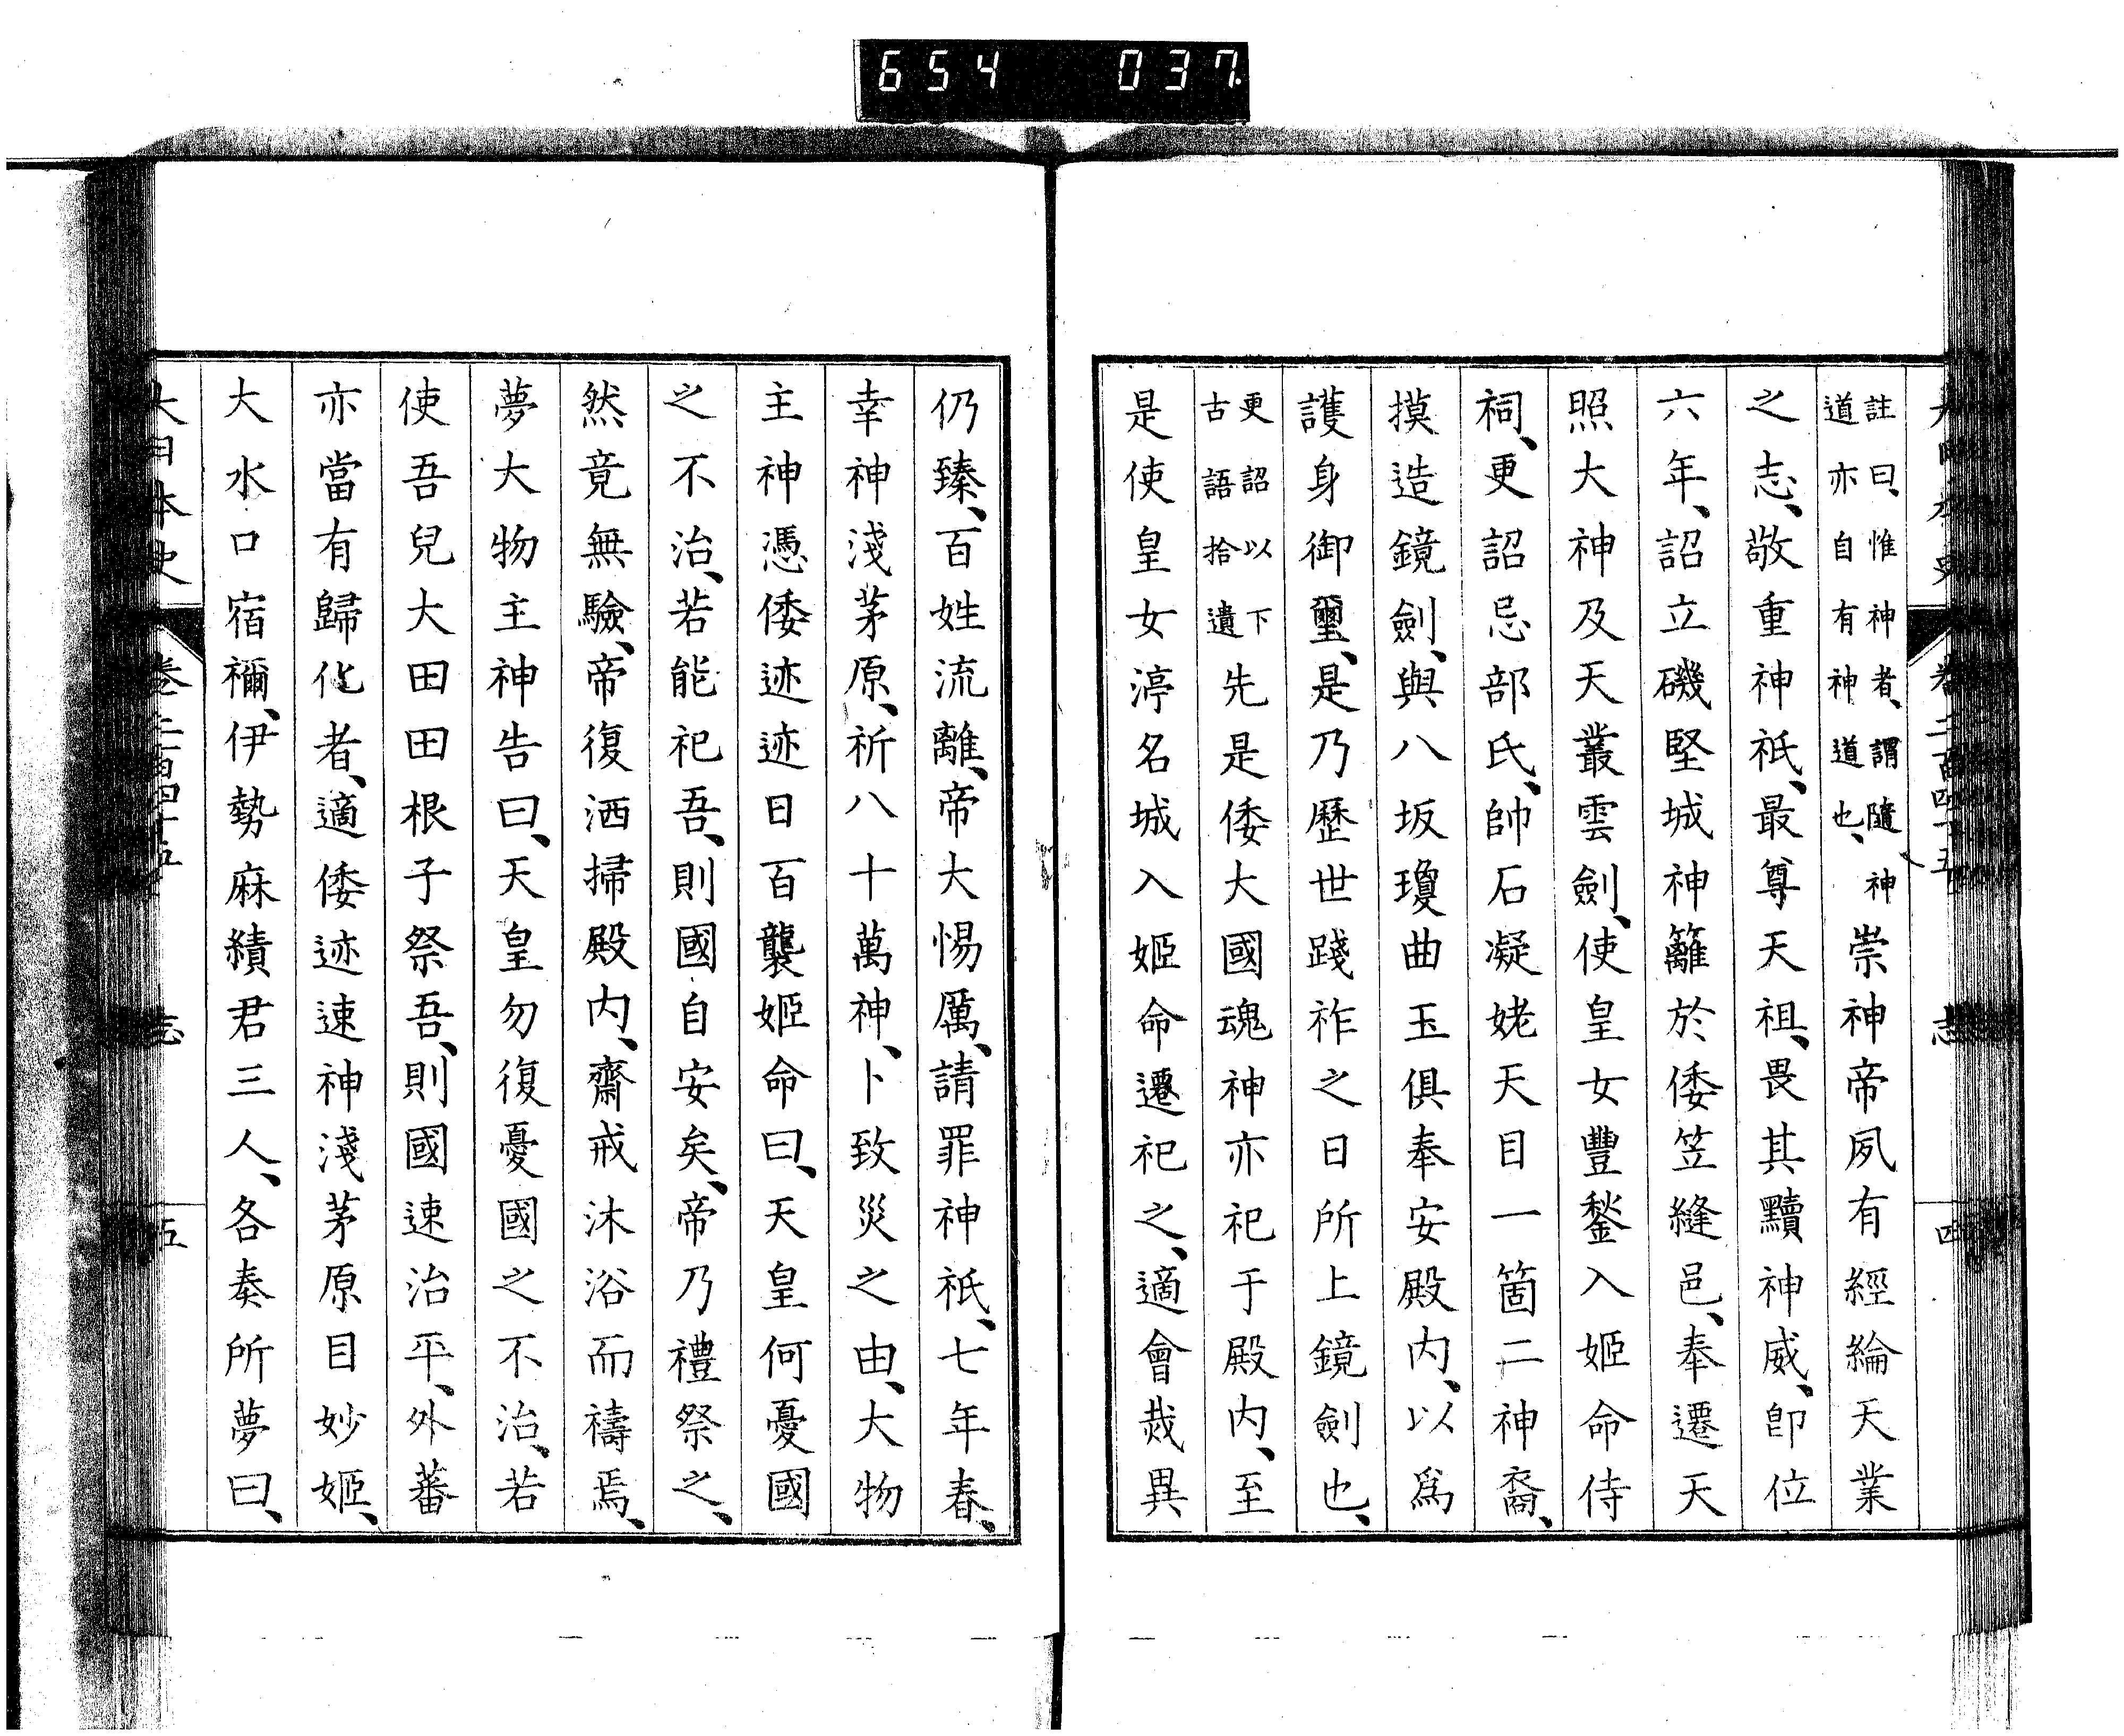 654 037
註曰、惟神者、謂隨神
道亦自有神道也、
崇神帝夙有經綸天業
之志、敬重神祇、最尊天祖、畏其黷神威、卽位
六年、詔立磯堅城神籬於倭笠縫邑、奉遷天
照大神及天叢雲劍、使皇女豐鍬入姬命侍
祠、更詔忌部氏、帥石凝姥天目一箇二神裔、
摸造鏡劍、與八坂瓊曲玉俱奉安殿內、以爲
護身御璽、是乃歷世踐祚之日所上鏡劍也、
更詔以下
古語拾遺
先是倭大國魂神亦祀于殿內、至
是使皇女渟名城入姬命遷祀之、適會烖異
仍臻、百姓流離、帝大惕厲、請罪神祇、七年春、
幸神淺茅原、祈八十萬神、卜致災之由、大物
主神憑倭迹迹日百襲姬命曰、天皇何憂國
之不治、若能祀吾、則國自安矣、帝乃禮祭之、
然竟無驗、帝復洒掃殿內、齋戒沐浴而禱焉、
夢大物主神告曰、天皇勿復憂國之不治、若
使吾兒大田田根子祭吾、則國速治平、外蕃
亦當有歸化者、適倭迹速神淺茅原目妙姬、
大水口宿禰、伊勢麻績君三人、各奏所夢曰、
大日本史 卷二百四十五 志 五